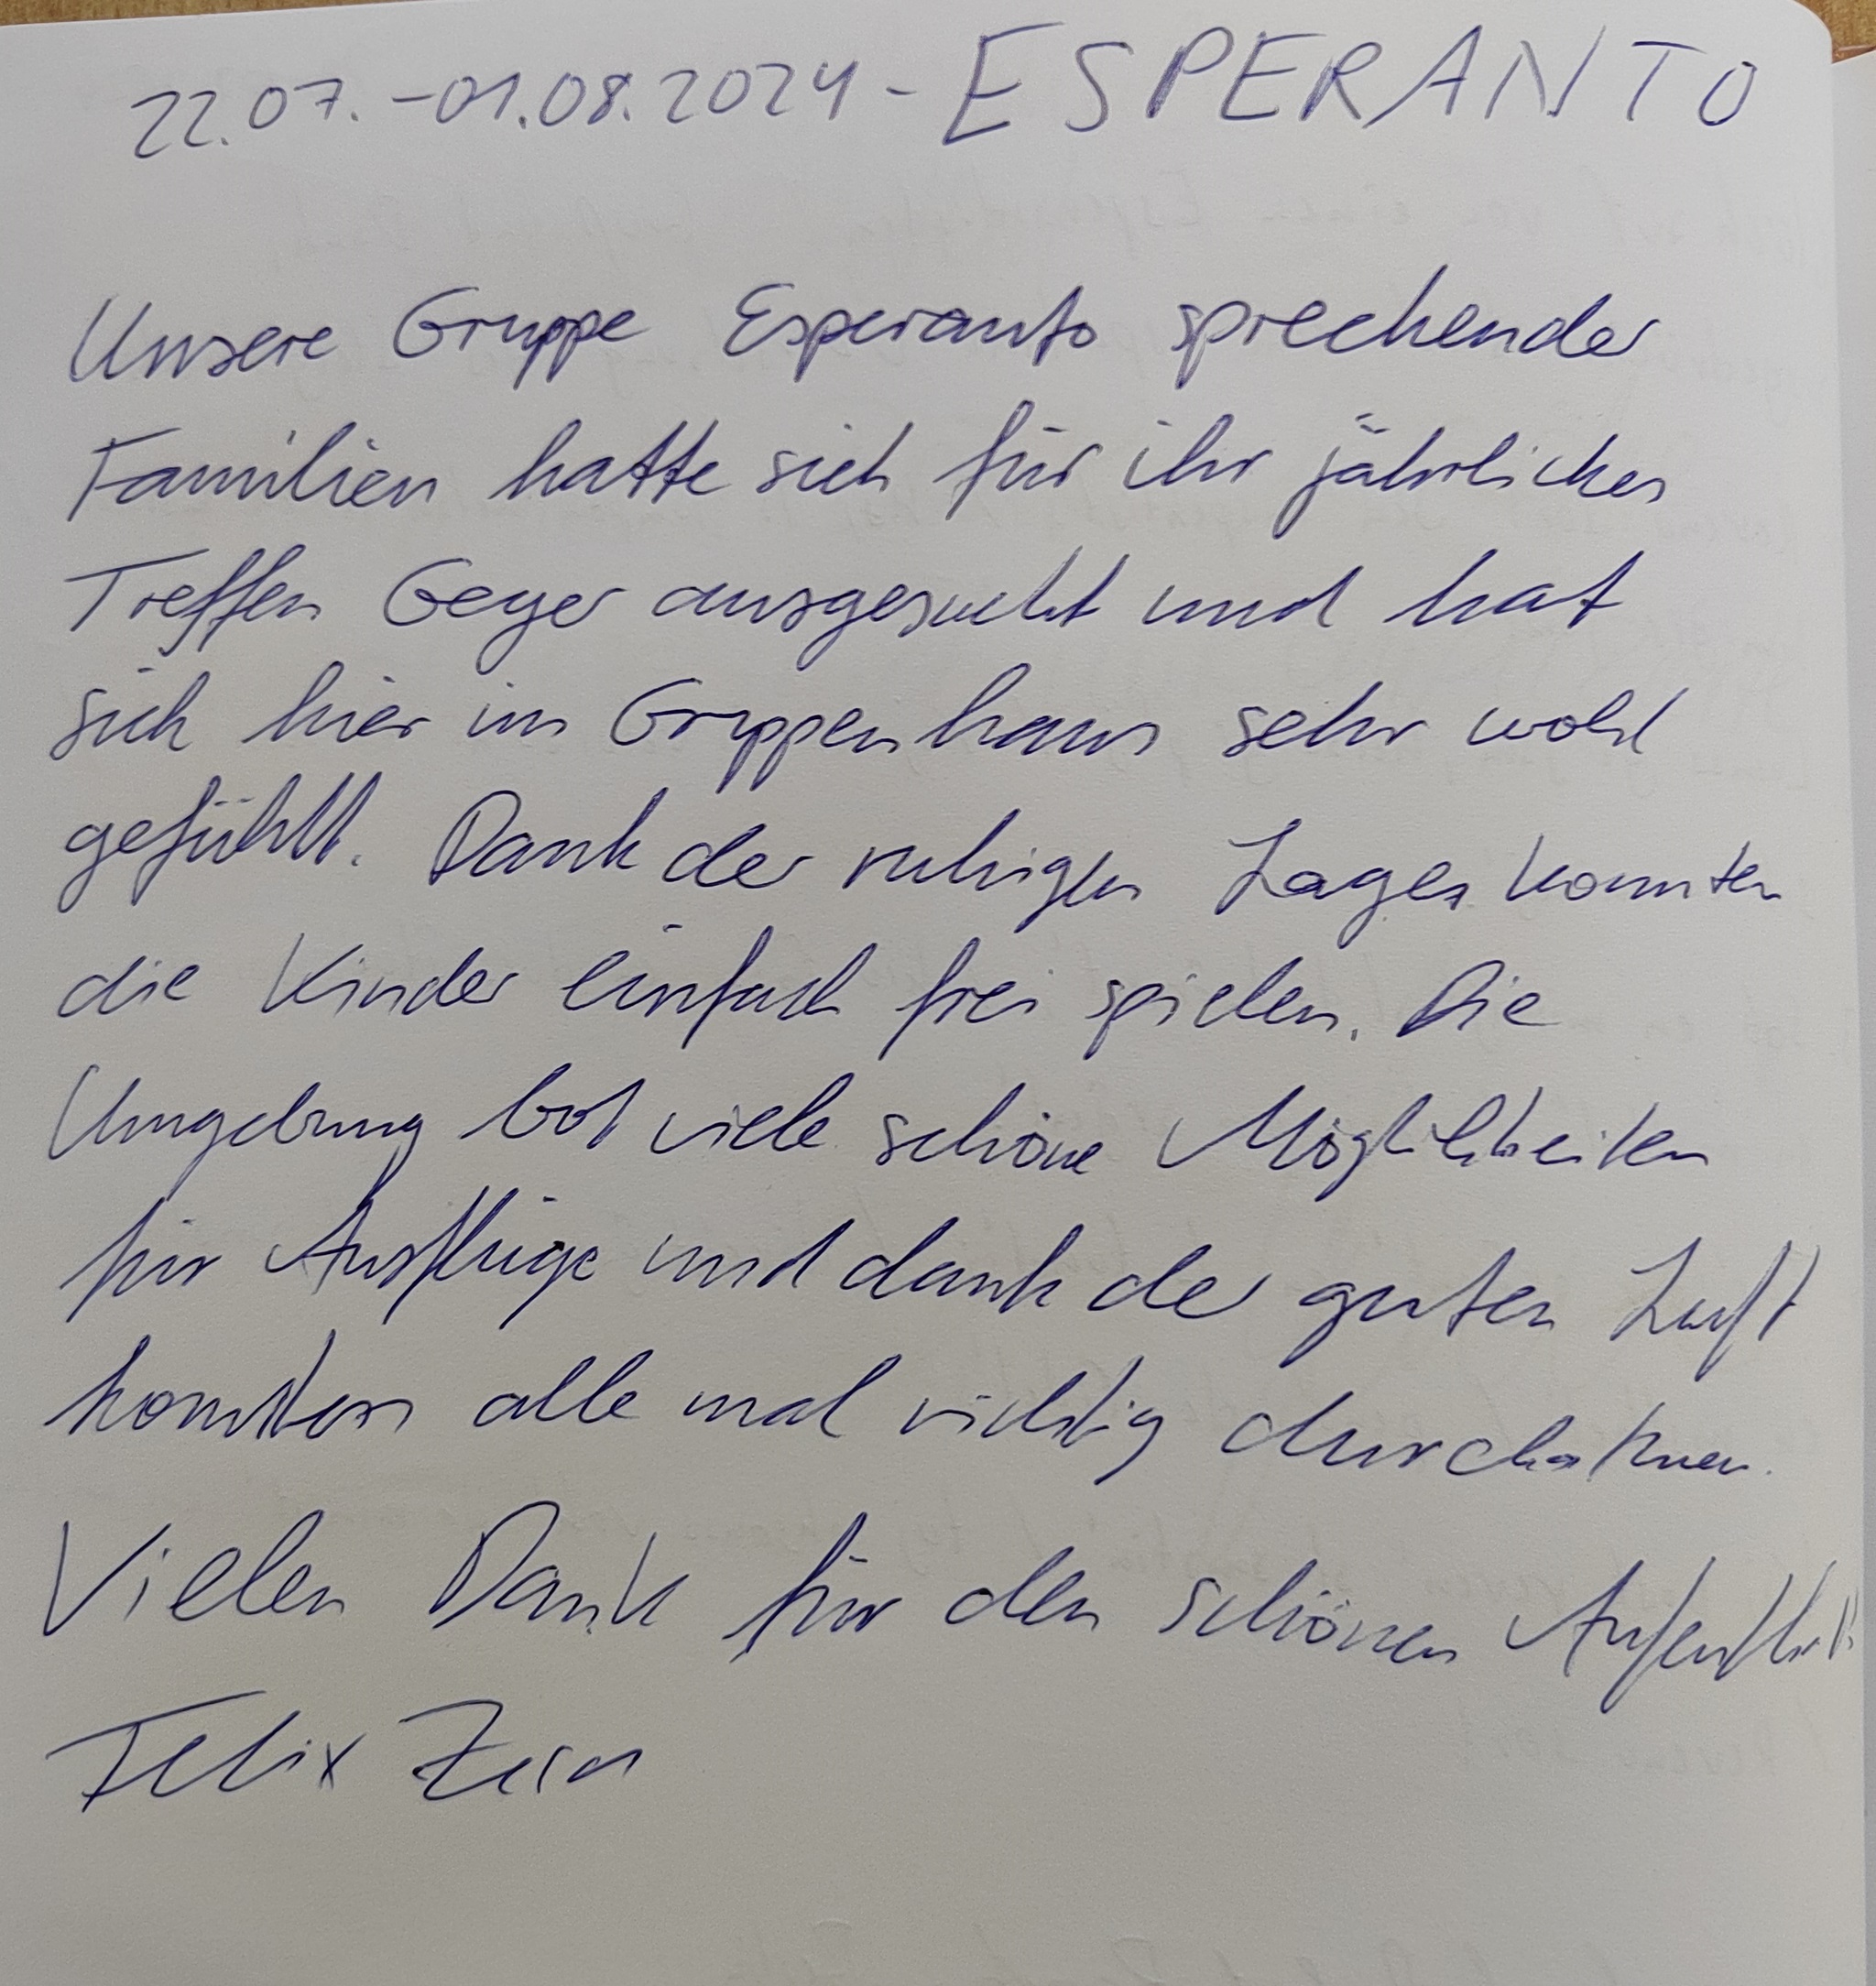 22.07.-01.08.2024 - ESPERANTO
Unsere Gruppe Esperanto sprechender
Familien hatte sich für ihr jährliches
Treffen Geyer ausgesucht und hat
sich hier im Gruppenhaus sehr wohl
gefühlt. Dank der ruhigen Lage konnten
die Kinder einfach frei spielen. Die
Umgebung bot viele schöne Möglichkeiten
für Ausflüge und dank der guten Luft
konnten alle mal richtig durchatmen.
Vielen Dank für den schönen Aufenthalt
Felix